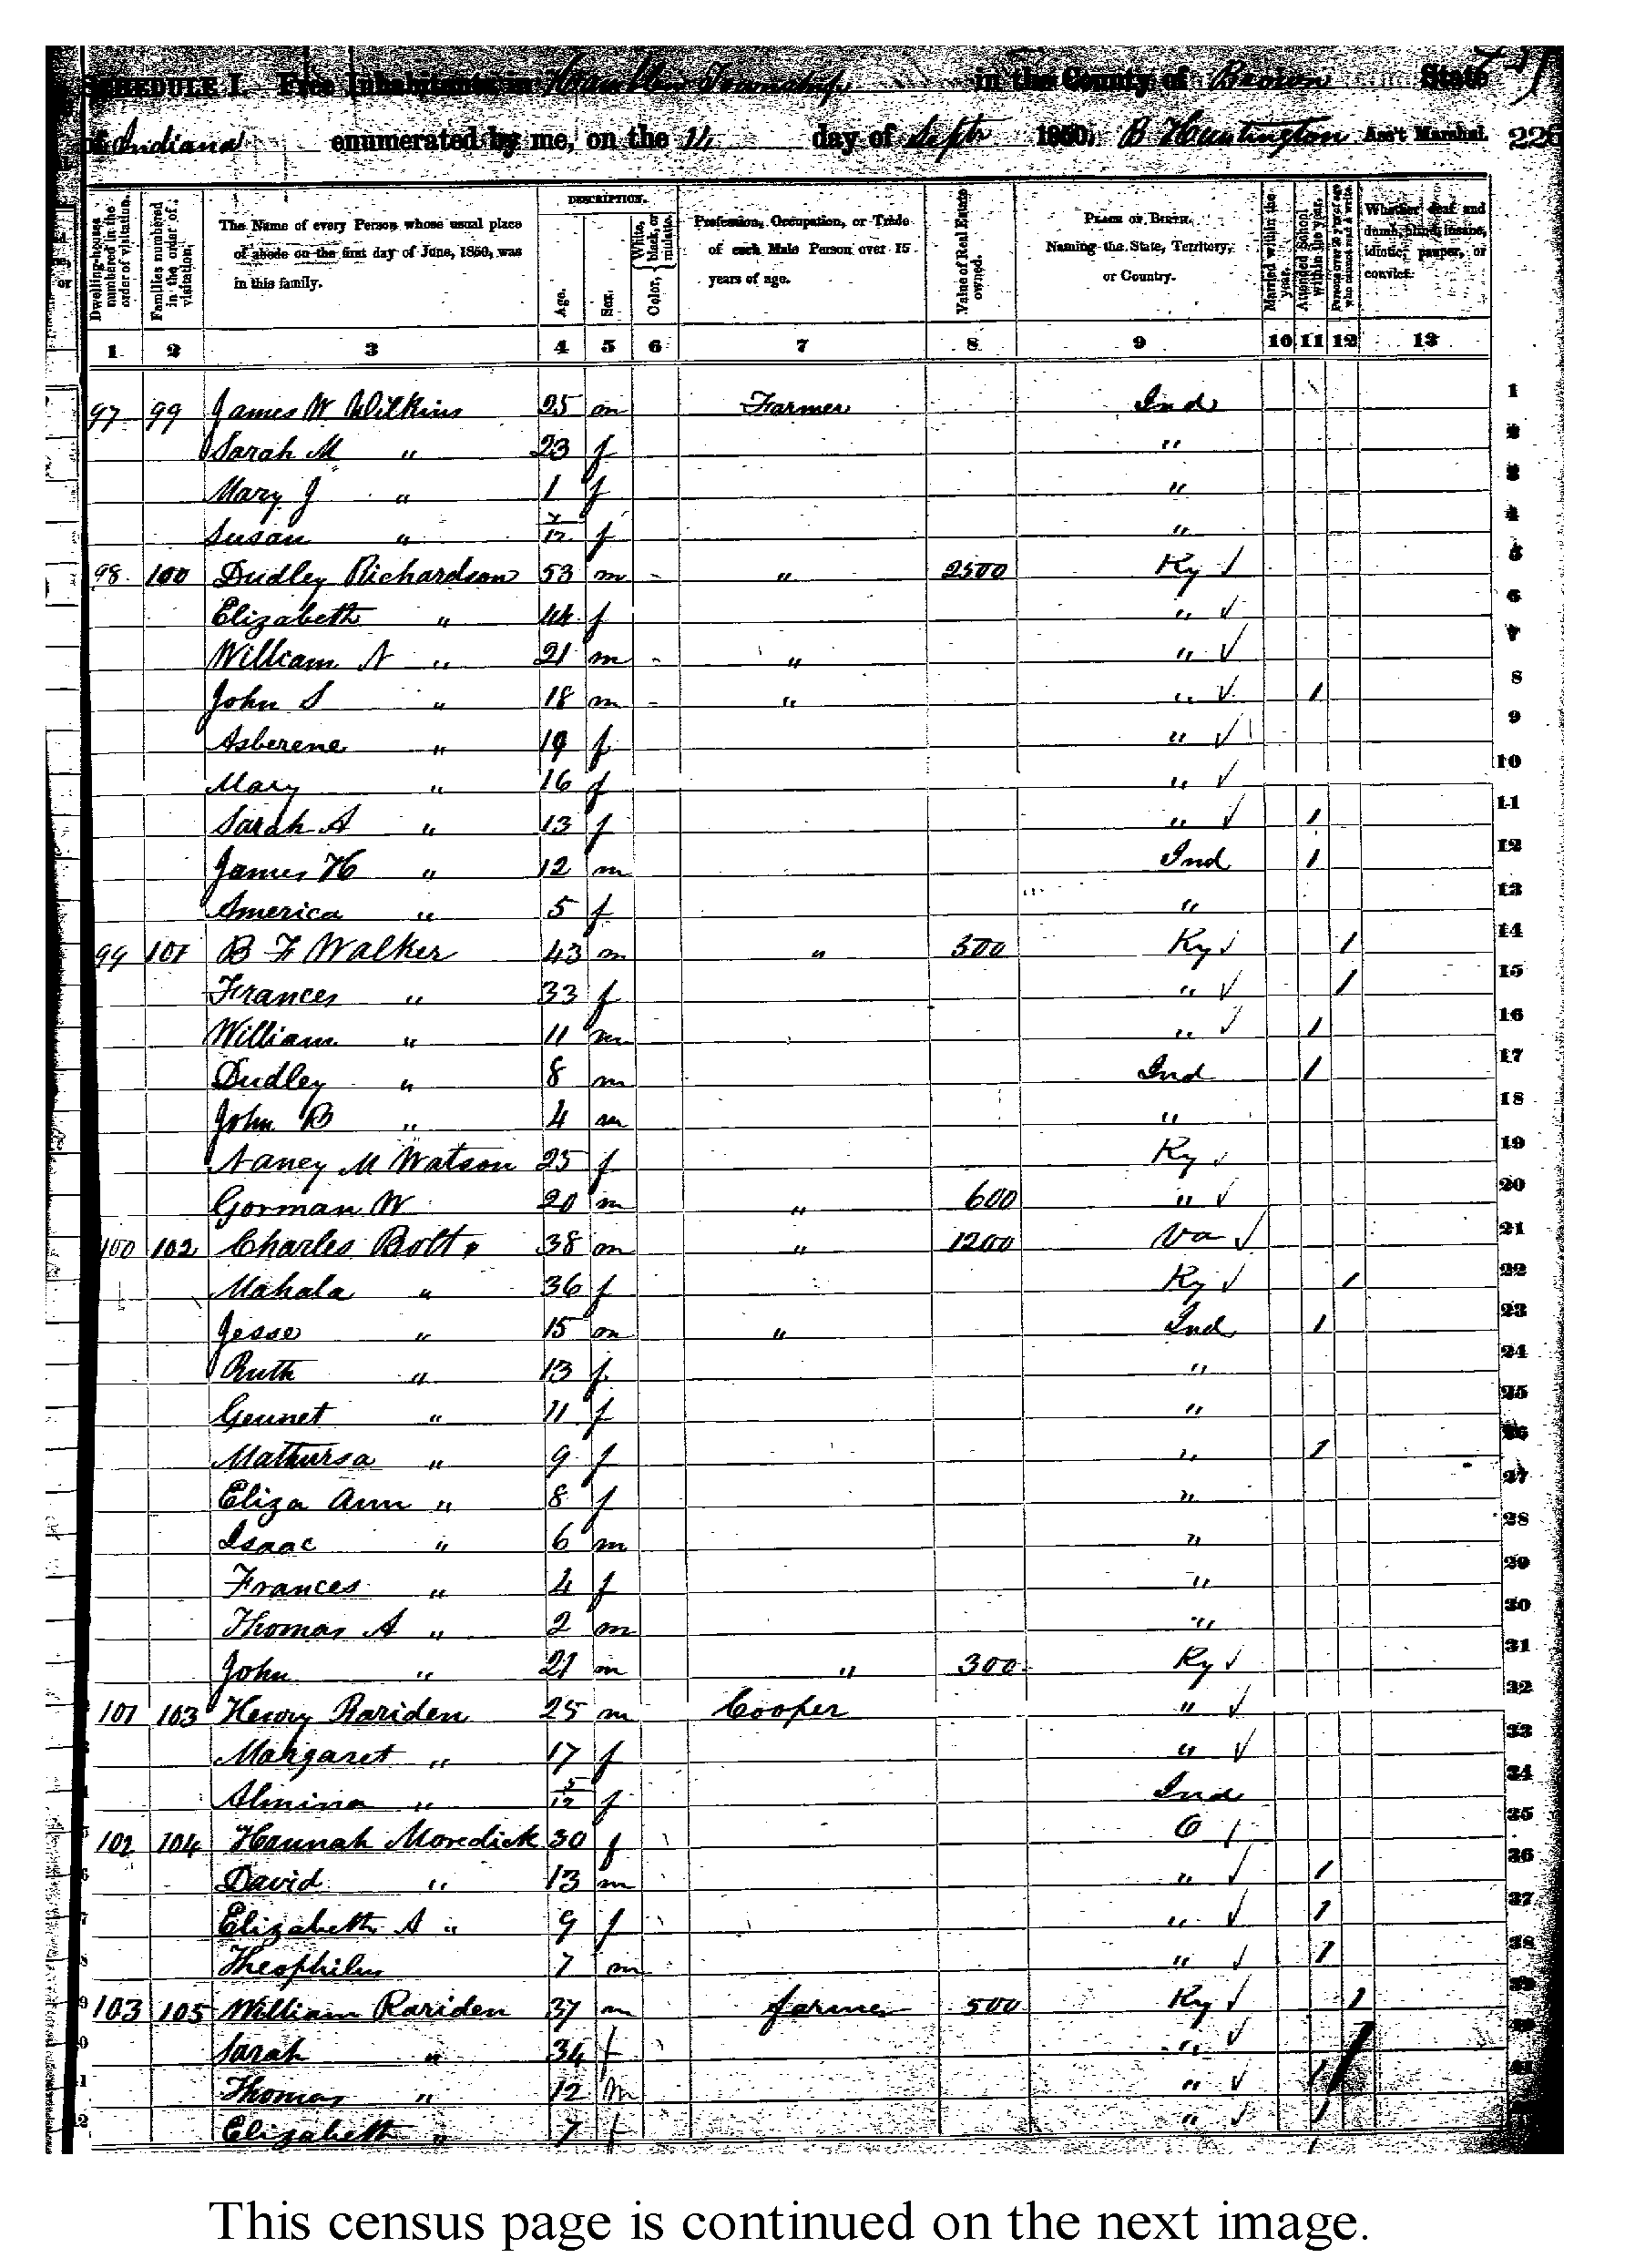 SCHEDULE I. Free Inhabitants in Hamblen Township in the County of Brown State
of Indiana enumerated by me, on the 14 day of Sept 1850. B Huntington Ass't Marshal. 226
Dwelling-houses numbered in the order of visitation. Families numbered in the order of visitation. The Name of every Person whose usual place of abode on the first day of June, 1850, was in this family. DESCRIPTION. Age. Sex. Color, { White, black, or mulatto. Profession, Occupation, or Trade of each Male Person over 15 years of age. Value of Real Estate owned. PLACE OF BIRTH. Naming the State, Territory, or Country. Married within the year. Attended School within the year. Persons over 20 y'rs of age who cannot read & write. Whether deaf and dumb, blind, insane, idiotic, pauper, or convict.
1 2 3 4 5 6 7 8 9 10 11 12 13
97 99 James W Wilkins 25 m Farmer Ind 1
Sarah M " 23 f " 2
Mary J " 1 f " 3
Susan " 7/12 f " 4
98 100 Dudley Richardson 53 m - " 2500 Ky ✓ 5
Elizabeth " 44 f " ✓ 6
William N " 21 m - " " ✓ 7
John S " 18 m - " " ✓ 1 8
Asberene " 19 f " ✓ 9
Mary " 16 f " ✓ 10
Sarah A " 13 f " ✓ 1 11
James H " 12 m Ind 1 12
America " 5 f " 13
99 101 B F Walker 43 m " 500 Ky ✓ 1 14
Frances " 33 f " ✓ 1 15
William " 11 m " ✓ 1 16
Dudley " 8 m Ind 1 17
John B " 4 m " 18
Nancy M Watson 25 f Ky ✓ 19
Gorman W 20 m " 600 " ✓ 20
100 102 Charles Bolt 38 m " 1200 Va ✓ 21
Mahala " 36 f Ky ✓ 1 22
Jesse " 15 m " Ind 1 23
Ruth " 13 f " 24
Gennet " 11 f " 25
Mathursa " 9 f " 1 26
Eliza Ann " 8 f " 27
Isaac " 6 m " 28
Frances " 4 f " 29
Thomas A " 2 m " 30
John " 21 m " 300 Ky ✓ 31
101 103 Henry Rariden 25 m Cooper " ✓ 32
Margaret " 17 f " ✓ 33
Almina " 5/12 f Ind 34
102 104 Hannah Moredick 30 f O 35
David " 13 m " ✓ 1 36
Elizabeth A " 9 f " ✓ 1 37
Theophilus 7 m " ✓ 1 38
103 105 William Rariden 37 m farmer 500 Ky ✓ 1 39
Sarah " 34 f " ✓ 1
Thomas " 12 m " ✓ 1 41
Elizabeth " 7 f " ✓ 1
This census page is continued on the next image.